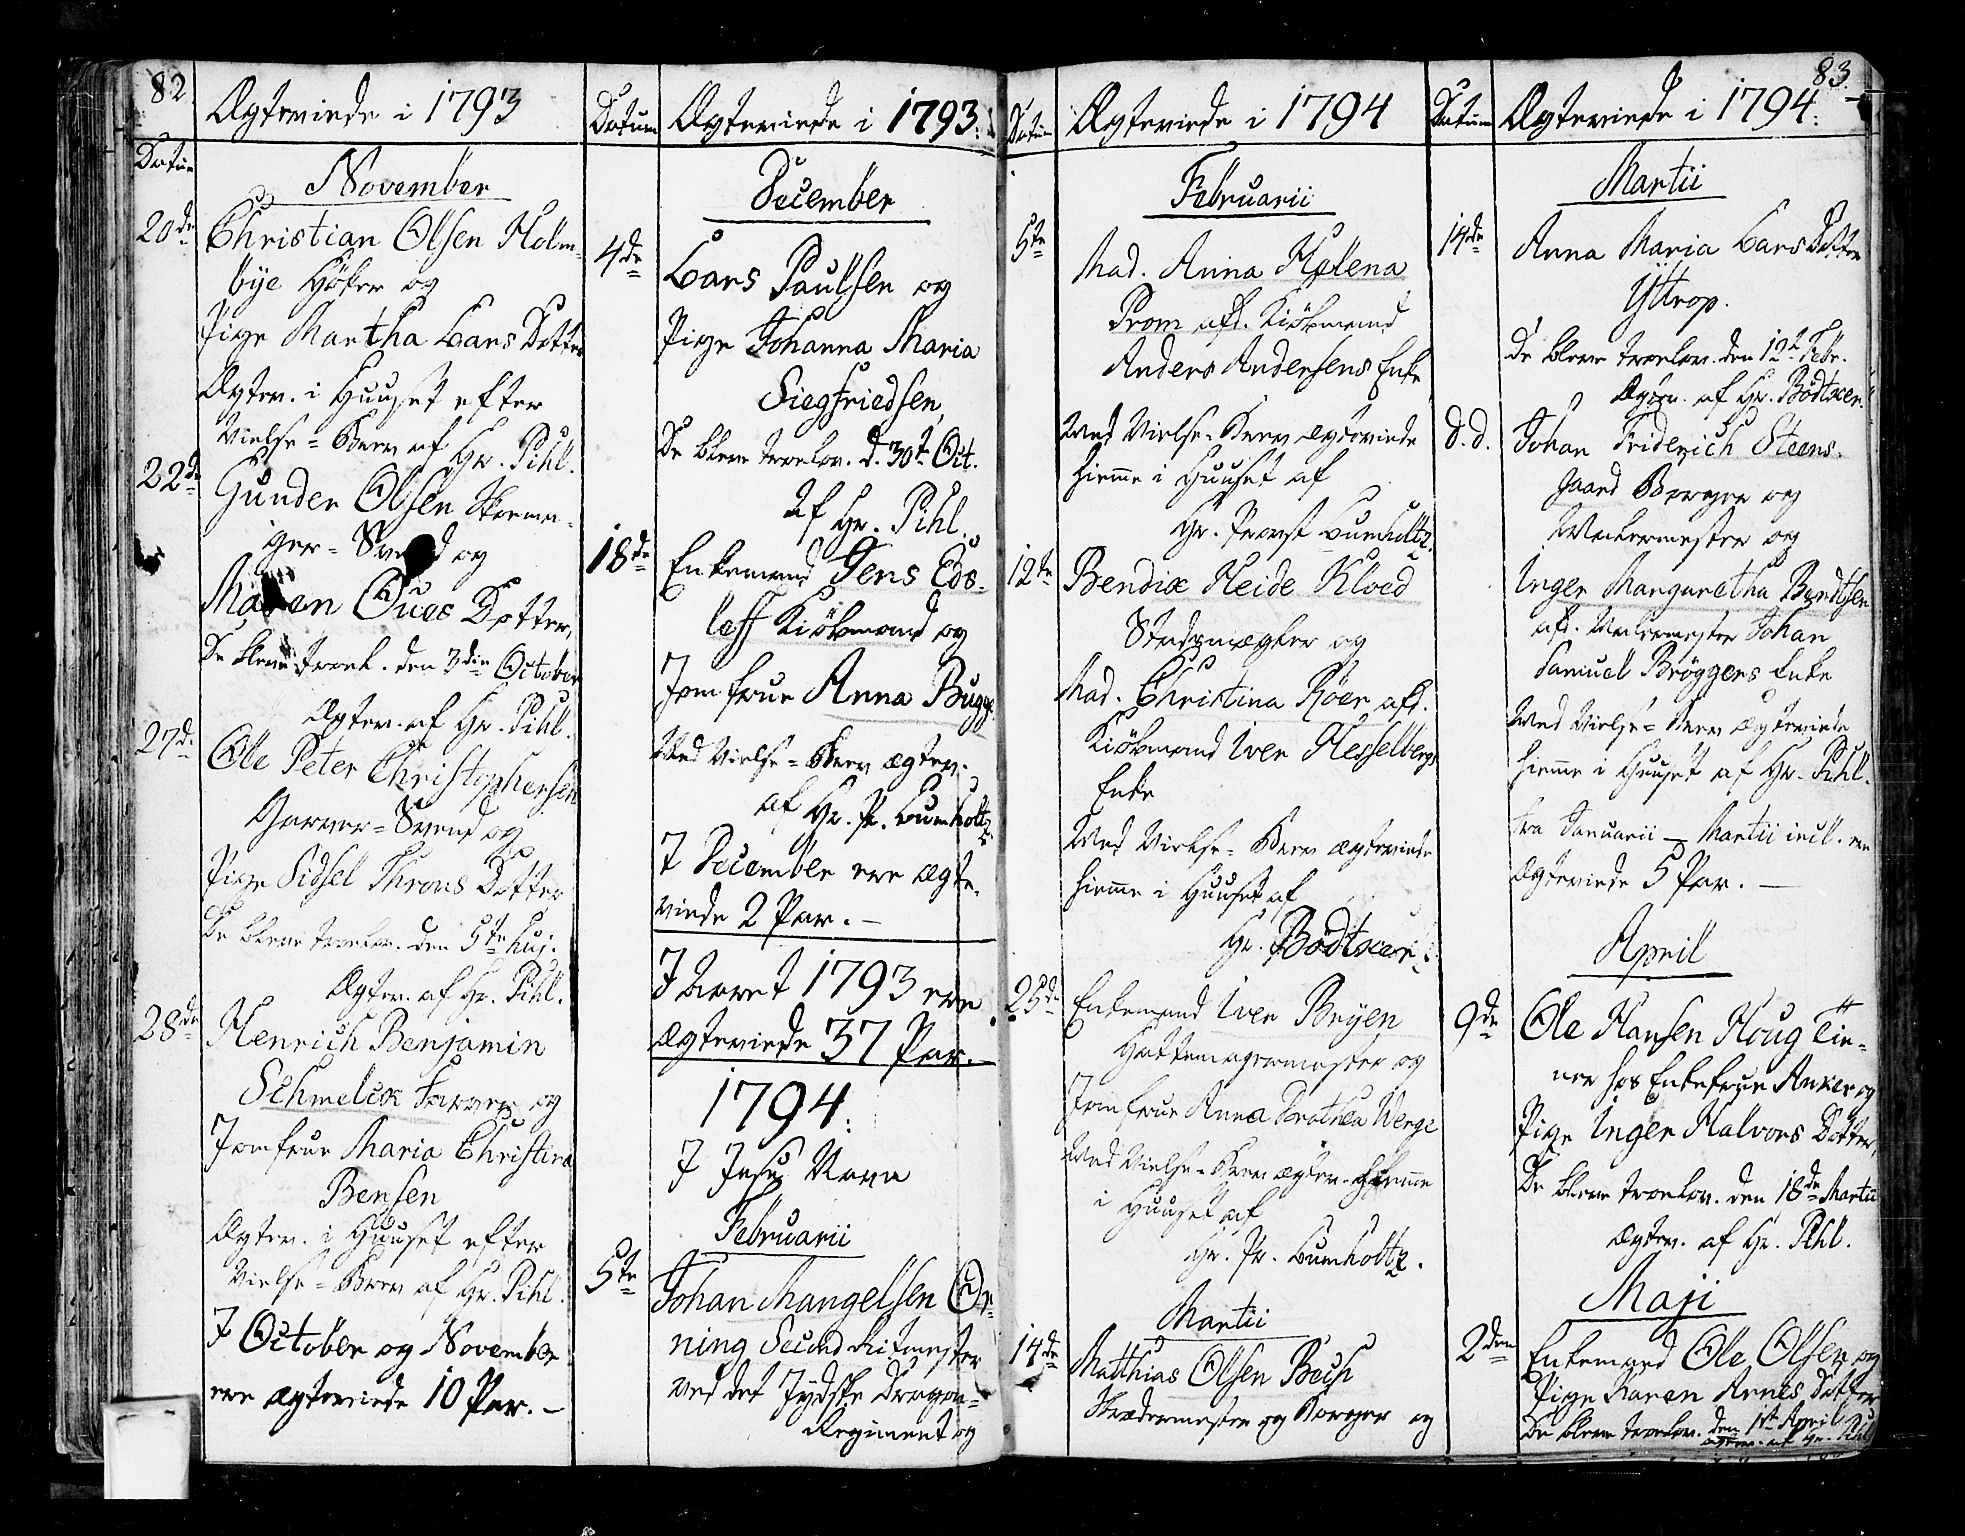 82
Ægteviede i 1793
Datum
November
20de
Christian Olsen Holm-
bÿe Höker og
Pige Martha Lars Dotter
Ægtev. i Huuset efter
Vielse-Brev af Hr. Pihl.
22de
Gunder Olsen Skoma-
ger-Svend og
Maren Oues Dotter,
De bleve troel. den 3die October
Ægtev. af Hr. Pihl.
27de
Ole Peter Christophersen
Garver-Svend og
Pige Sidsel Throns Dotter
De bleve troelov. den 5te huj.
Ægtev. af Hr. Pihl.
28de
Henrich Benjamin
Schmelck Farver og
Jomfrue Maria Christina
Bensen
Ægtev. i Huuset efter
Vielse-Brev af Hr. Pihl.
I October og November
ere ægteviede 10 Par. –
Datum
Ægteviede i 1793.
December
4de
Lars Paulsen og
Pige Johanna Maria
Siegfriedsen,
De bleve troelov. d. 30t Oct.
Af Hr. Pihl.
18de
Enkemand Jens Eds-
leff Kiöbmand og
Jomfrue Anna Bugge
Med Vielse-Brev ægtev.
af Hr. Pr. Lumholtz
I December ere ægte-
viede 2 Par. –
I Aaret 1793 ere
ægteviede 37 Par. –
1794.
I Jesu Navn
Februarii
5te
Johan Mangelsen Or-
ning Second Ritmester
ved det Jydske Dragon-
Regiment og
83.
Datum
Ægteviede i 1794
Februarii
5te
Mad. Anna Helena
Prom afd. Kiöbmand
Anders Andersens Enke
Med Vielse-Brev ægteviede
hiemme i Huuset af
Hr. Provst Lumholtz.
12te
Bendix Heide Kloed
Stadsmægler og
Mad. Christina Röer afd.
Kiöbmand Iver Hesselbergs
Enke
Med Vielse-Brev ægteviede
hiemme i Huuset af
Hr. Bödtker.
25de
Enkemand Iver Brÿen
Hattemagermester og
Jomfrue Anna Drothea Wenge
Med Vielse-Brev ægtev. hiemme
i Huuset af
Hr. Pr. Lumholtz.
Martii
14de
Matthias Olsen Bech
Skredermester og Borger og
Datum
Ægteviede i 1794.
Martii
14de
Anna Maria Lars Dotter
Ÿttrop.
De bleve troelov. den 12t Febr.
Ægtev. af Hr. Bödtker.
d. d.
Johan Friderich Steens-
gaard Borger og
Malermester og
Inger Margaretha Bendtsen
afd. Malermester Johan
Samuel Bröggers Enke
Med Vielse-Brev ægteviede
hiemme i Huuset af Hr. Pihl.
Fra Januarii – Martii incl. ere
ægteviede 5 Par. –
April
9de
Ole Hansen Houg Tie-
ner hos Enkefrue Anker og
Pige Inger Halvors Dotter,
De bleve troelov. den 18de Martii
Ægtev. af Hr. Pihl.
Maji
2den
Enkemand Ole Olsen og
Pige Karen Arnes Dotter
De bleve troelov. den 1st April
ægtev. af Hr. Pihl